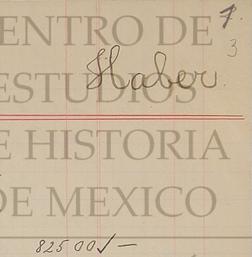 ENTRO DE 7.
3
Haber.
ESTUDIOS
E HISTORIA
DE MEXICO
825 00 ✓ —